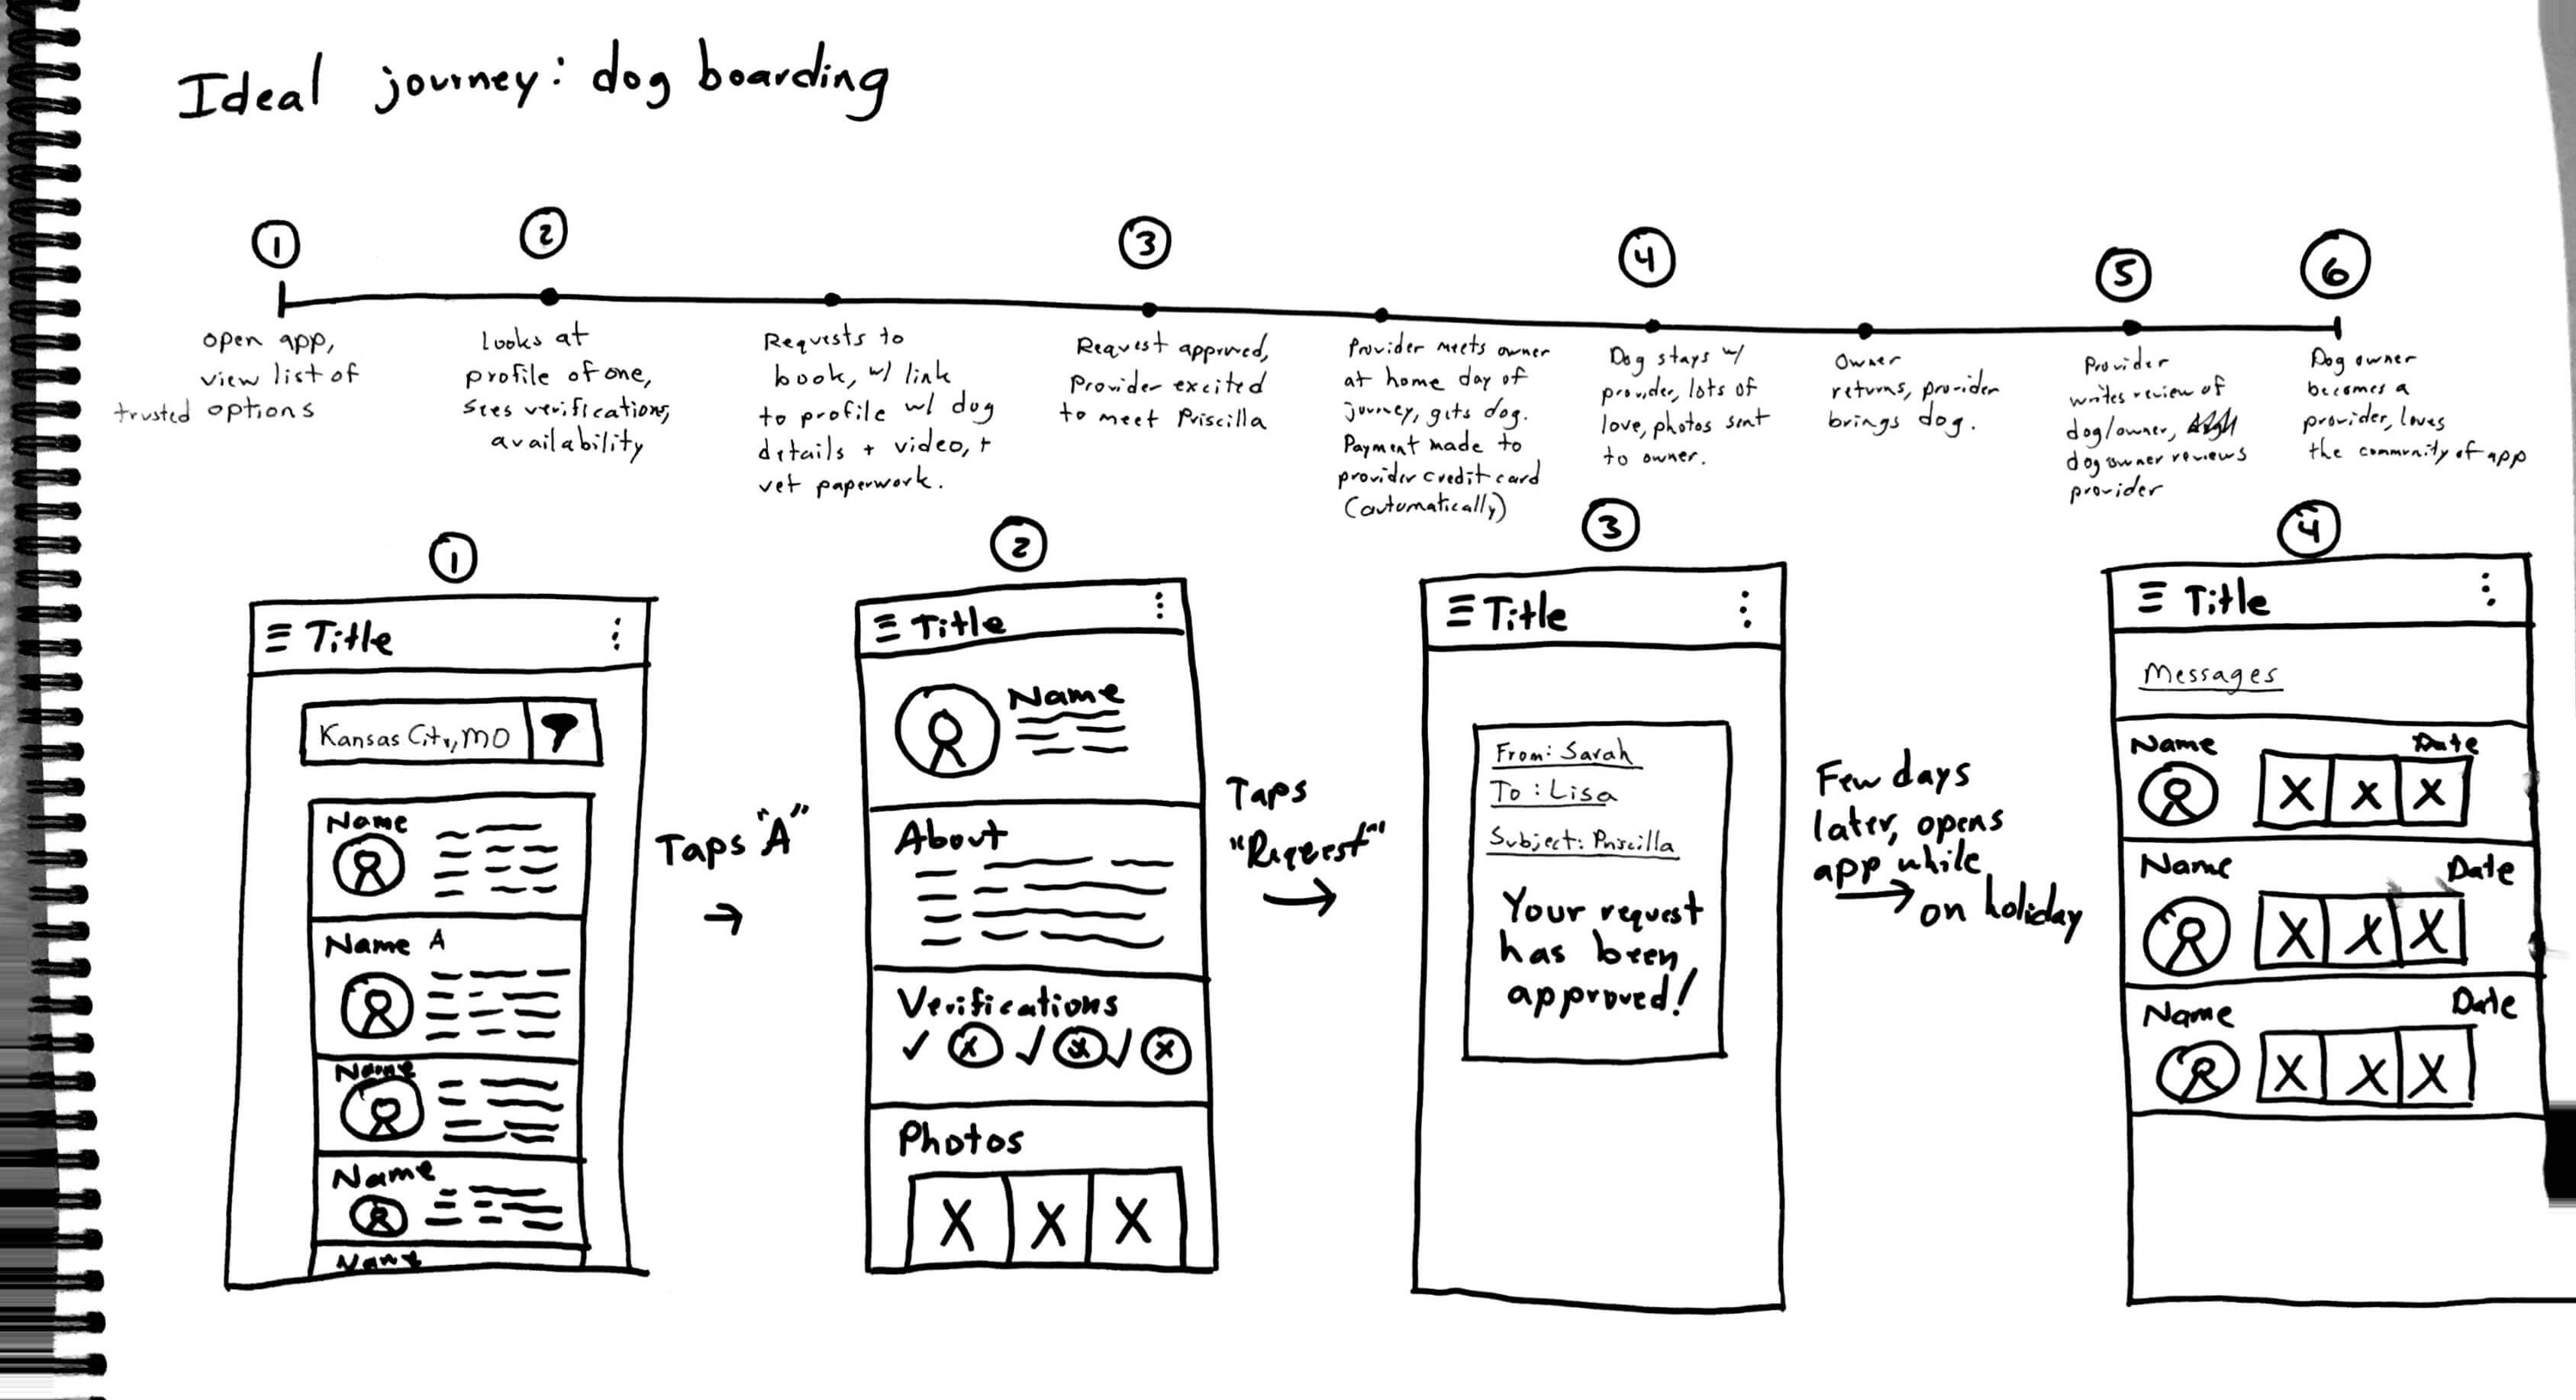 Ideal journey: dog boarding
1
2
3
4
5
6
open app,
view list of
trusted options
looks at
profile of one,
sees verifications,
availability
Requests to
book, w/ link
to profile w/ dog
details + video, +
vet paperwork.
Request approved,
Provider excited
to meet Priscilla
Provider meets owner
at home day of
journey, gets dog.
Payment made to
provider credit card
(automatically)
Dog stays w/
provider, lots of
love, photos sent
to owner.
Owner
returns, provider
brings dog.
Provider
writes review of
dog/owner,
dog owner reviews
provider
Dog owner
becomes a
provider, loves
the community of app
1
Title
Kansas City, MO
Name
Name A
Name
Name
Name
Taps "A"
2
Title
Name
About
Verifications
Photos
Taps
"Request"
3
Title
From: Sarah
To: Lisa
Subject: Priscilla
Your request
has been
approved!
Few days
later, opens
app while
on holiday
4
Title
Messages
Name Date
Name Date
Name Date